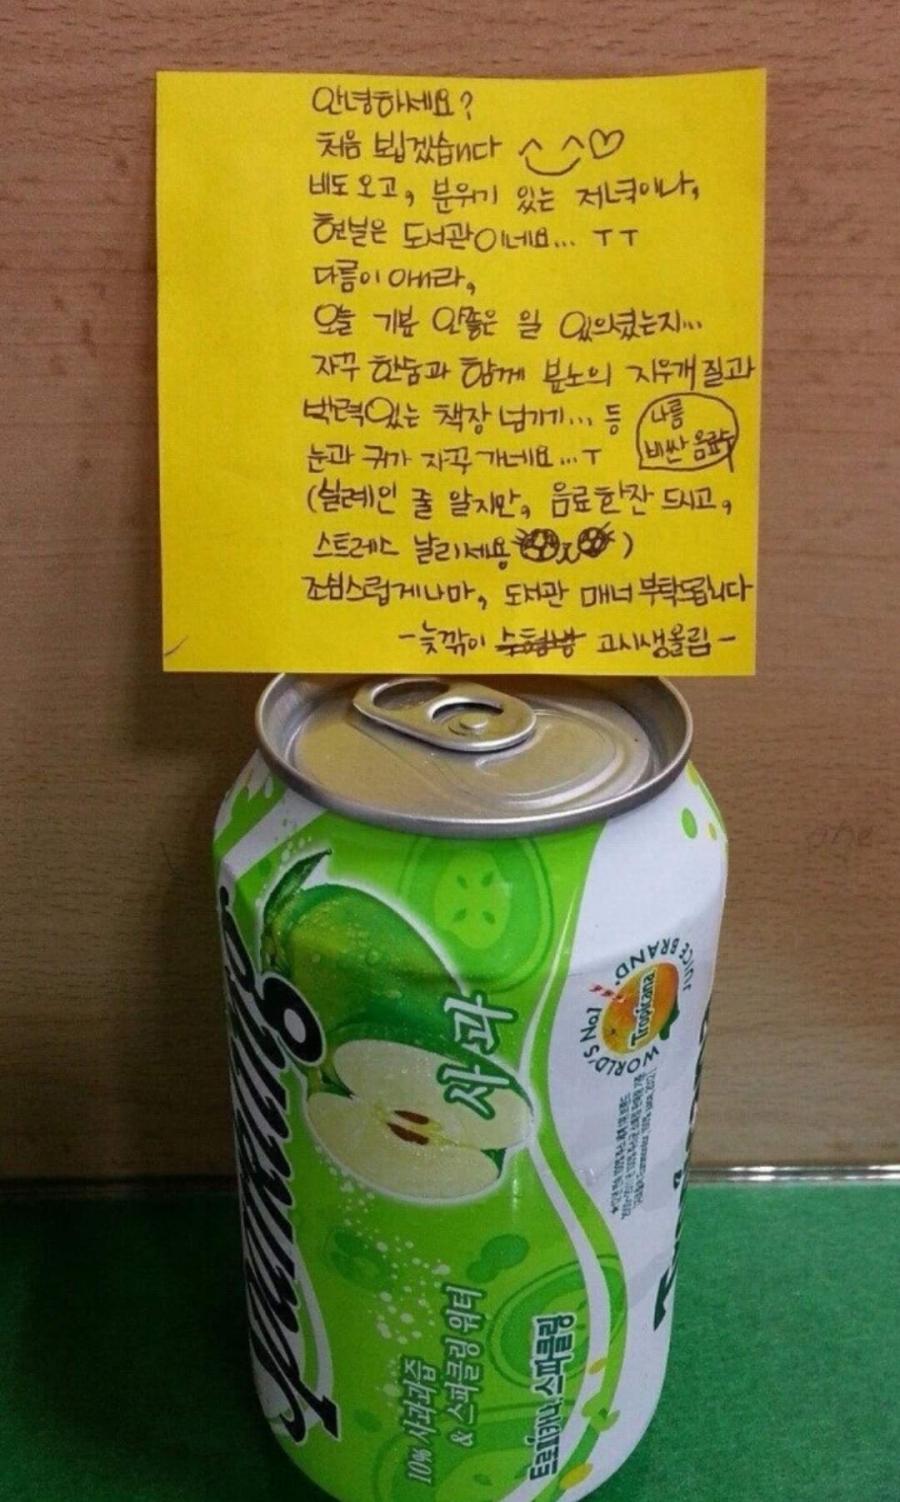 안녕하세요?
처음 뵙겠습니다 ^‿^♡
비도 오고, 분위기 있는 저녁이나,
현실은 도서관이네요... ㅜㅜ
다름이 아니라,
오늘 기분 안좋은 일 있으셨는지...
자꾸 한숨과 함께 분노의 지우개질과
박력있는 책장 넘기기... 등
눈과 귀가 자꾸 가네요...ㅜ
나름
비싼 음료수
(실례인 줄 알지만, 음료한잔 드시고,
스트레스 날리세용)
조심스럽게나마, 도서관 매너 부탁드립니다
-늦깎이 고시생올림-
Sparkling
사과
10% 사과과즙
& 스파클링 워터
트로피카나 스파클링
WORLD'S No.1 JUICE BRAND.
Tropicana